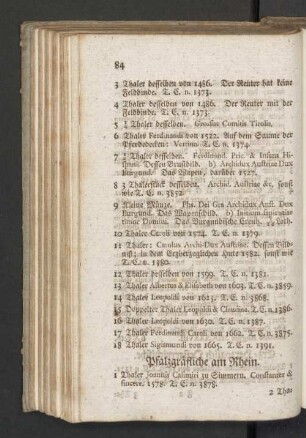 84
3 Thaler desselben von 1486. Der Reuter hat keine
Feldbinde. T. E. n. 1373.
4 Thaler desselben von 1486. Der Reuter mit der
Feldbinde. T. E. n. 1373.
5 Thaler desselben. Grossus Comitis Tirolis.
6 Thaler Ferdinandi von 1522. Auf dem Saume der
Pferddecken: T. E. n. 1374.
7 Thaler desselben. Ferdinand. Prin. & Infans Hi-
spani. Dessen Brustbild. b) Archidux Austriae Dux
Burgund. Das Wapen, darüber 1527.
8 3 Thalerstück desselben. Archid. Austriae &c. sonst
wie T. E. n. 3852.
9 Kleine Münze. Ph. Dei Gra Archidux Aust. Dux
Burgund. Das Wapenschild. b) Initium sapientiae
timor Domini. Das Burgundische Creutz. Loth.
10 Thaler Caroli von 1574. T. E. n. 1379.
11 Thaler: Carolus Archi-Dux Austriae. Dessen Bild-
niß; in dem Erzherzoglichen Hute 1582. sonst wie
T. E. n. 1380.
12 Thaler desselben von 1599. T. E. n. 1382.
13 Thaler Albertus & Elisabeth von 1603. T. E. n. 3859.
14 Thaler Leopoldi von 1623. T. E. n. 3868.
15 Doppelter Thaler Leopoldi & Claudiae. T. E. n. 1386.
16 Thaler Leopoldi von 1630. T. E. n. 1387.
17 Thaler Ferdinandi Caroli von 1662. T. E. n. 3875.
18 Thaler Sigismundi von 1665. T. E. n. 1391.
Pfalzgräfliche am Rhein.
1 Thaler Joannis Casimiri zu Simmern. Constanter &
sincere. 1578. T. E. n. 3878.
2 Tha-